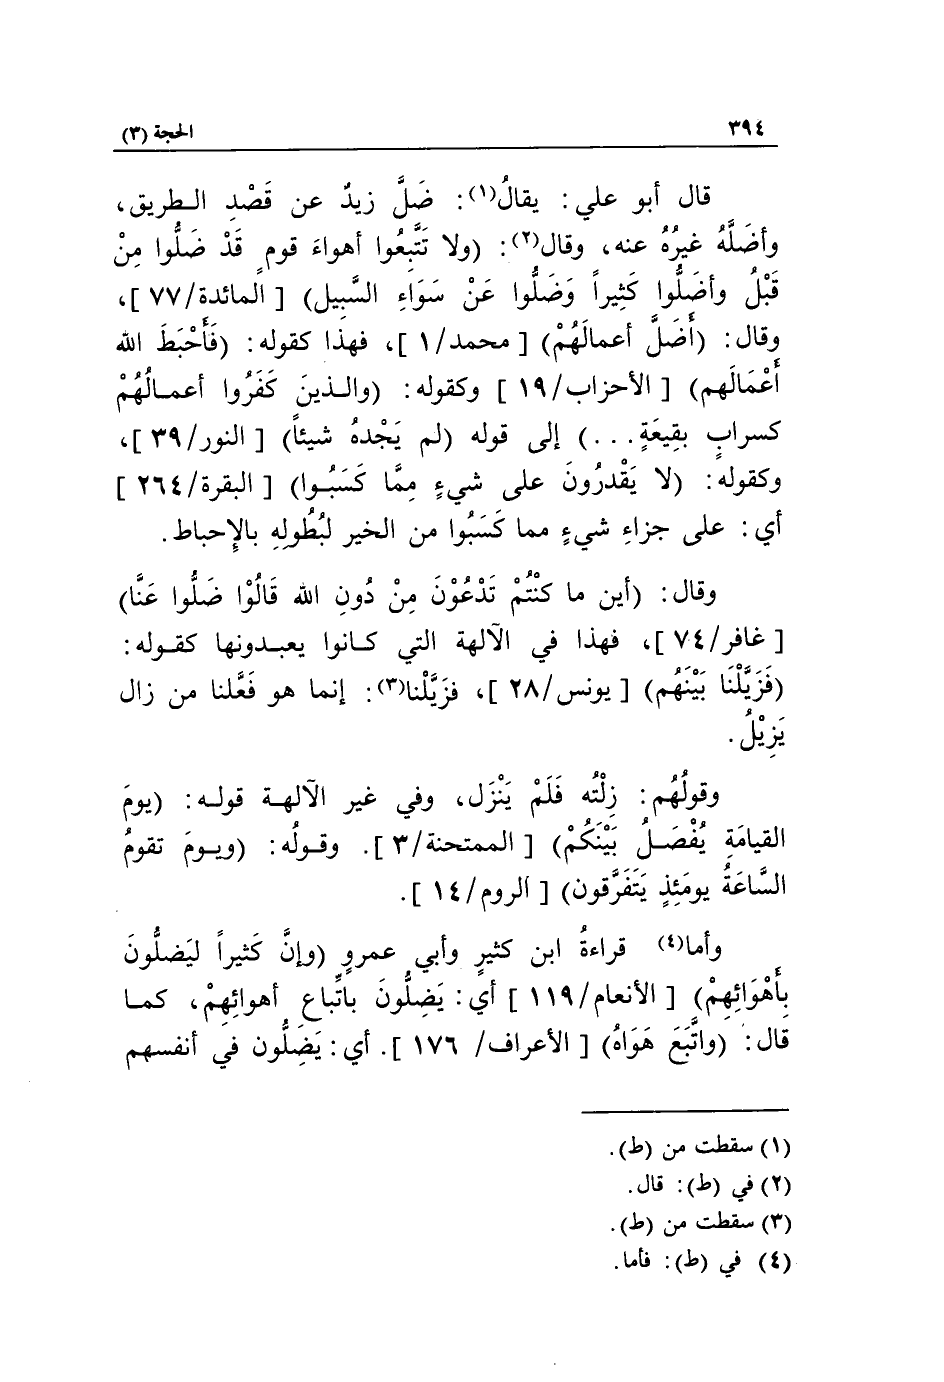 ٣٩٤ الحجة (٣)
قال أبو علي: يقالُ(١): ضَلَّ زيدٌ عن قَصْدِ الطريق،
وأضَلَّهُ غيرُهُ عنه، وقال(٢): (ولا تَتَّبِعُوا أهواءَ قومٍ قَدْ ضَلُّوا مِنْ
قَبْلُ وأضَلُّوا كَثِيراً وَضَلُّوا عَنْ سَوَاءِ السَّبِيل) [ المائدة/٧٧ ]،
وقال: (أَضَلَّ أعمالَهُمْ) [ محمد/١ ]، فهذا كقوله: (فَأَحْبَطَ الله
أَعْمَالَهم) [ الأحزاب/١٩ ] وكقوله: (والـذينَ كَفَرُوا أعمـالُهُمْ
كسرابٍ بقِيعَةٍ...) إلى قوله (لم يَجْدهُ شيئاً) [ النور/٣٩ ]،
وكقوله: (لا يَقْدرُونَ على شيءٍ مِمَّا كَسَبُـوا) [ البقرة/٢٦٤ ]
أي: على جزاءِ شيءٍ مما كَسَبُوا من الخير لبُطُولِهِ بالإِحباط.
وقال: (أين ما كنْتُمْ تَدْعُوْنَ مِنْ دُونِ الله قَالُوْا ضَلُّوا عَنَّا)
[ غافر/٧٤ ]، فهذا في الآلهة التي كـانوا يعبـدونها كقـوله:
(فَزَيَّلْنَا بَيْنَهُم) [ يونس/٢٨ ]، فزَيَّلْنا(٣): إنما هو فَعَّلنا من زال
يَزِيْلُ.
وقولُهُم: زِلْتُه فَلَمْ يَنْزَل، وفي غير الآلهـة قولـه: (يومَ
القيامَةِ يُفْصَـلُ بَيْنَكُمْ) [ الممتحنة/٣ ]. وقـولُه: (ويـومَ تقومُ
السَّاعَةُ يومَئِذٍ يَتَفَرَّقون) [ الروم/١٤ ].
وأما(٤) قراءةُ ابن كثيرٍ وأبي عمروٍ (وإنَّ كَثيراً ليَضلُّونَ
بأَهْوَائِهِمْ) [ الأنعام/١١٩ ] أي: يَضِلُّونَ باتِّباع أهوائِهِمْ، كمـا
قال: (واتَّبَعَ هَوَاهُ) [ الأعراف/ ١٧٦ ]. أي: يَضِلُّون في أنفسهم
(١) سقطت من (ط).
(٢) في (ط): قال.
(٣) سقطت من (ط).
(٤) في (ط): فأما.